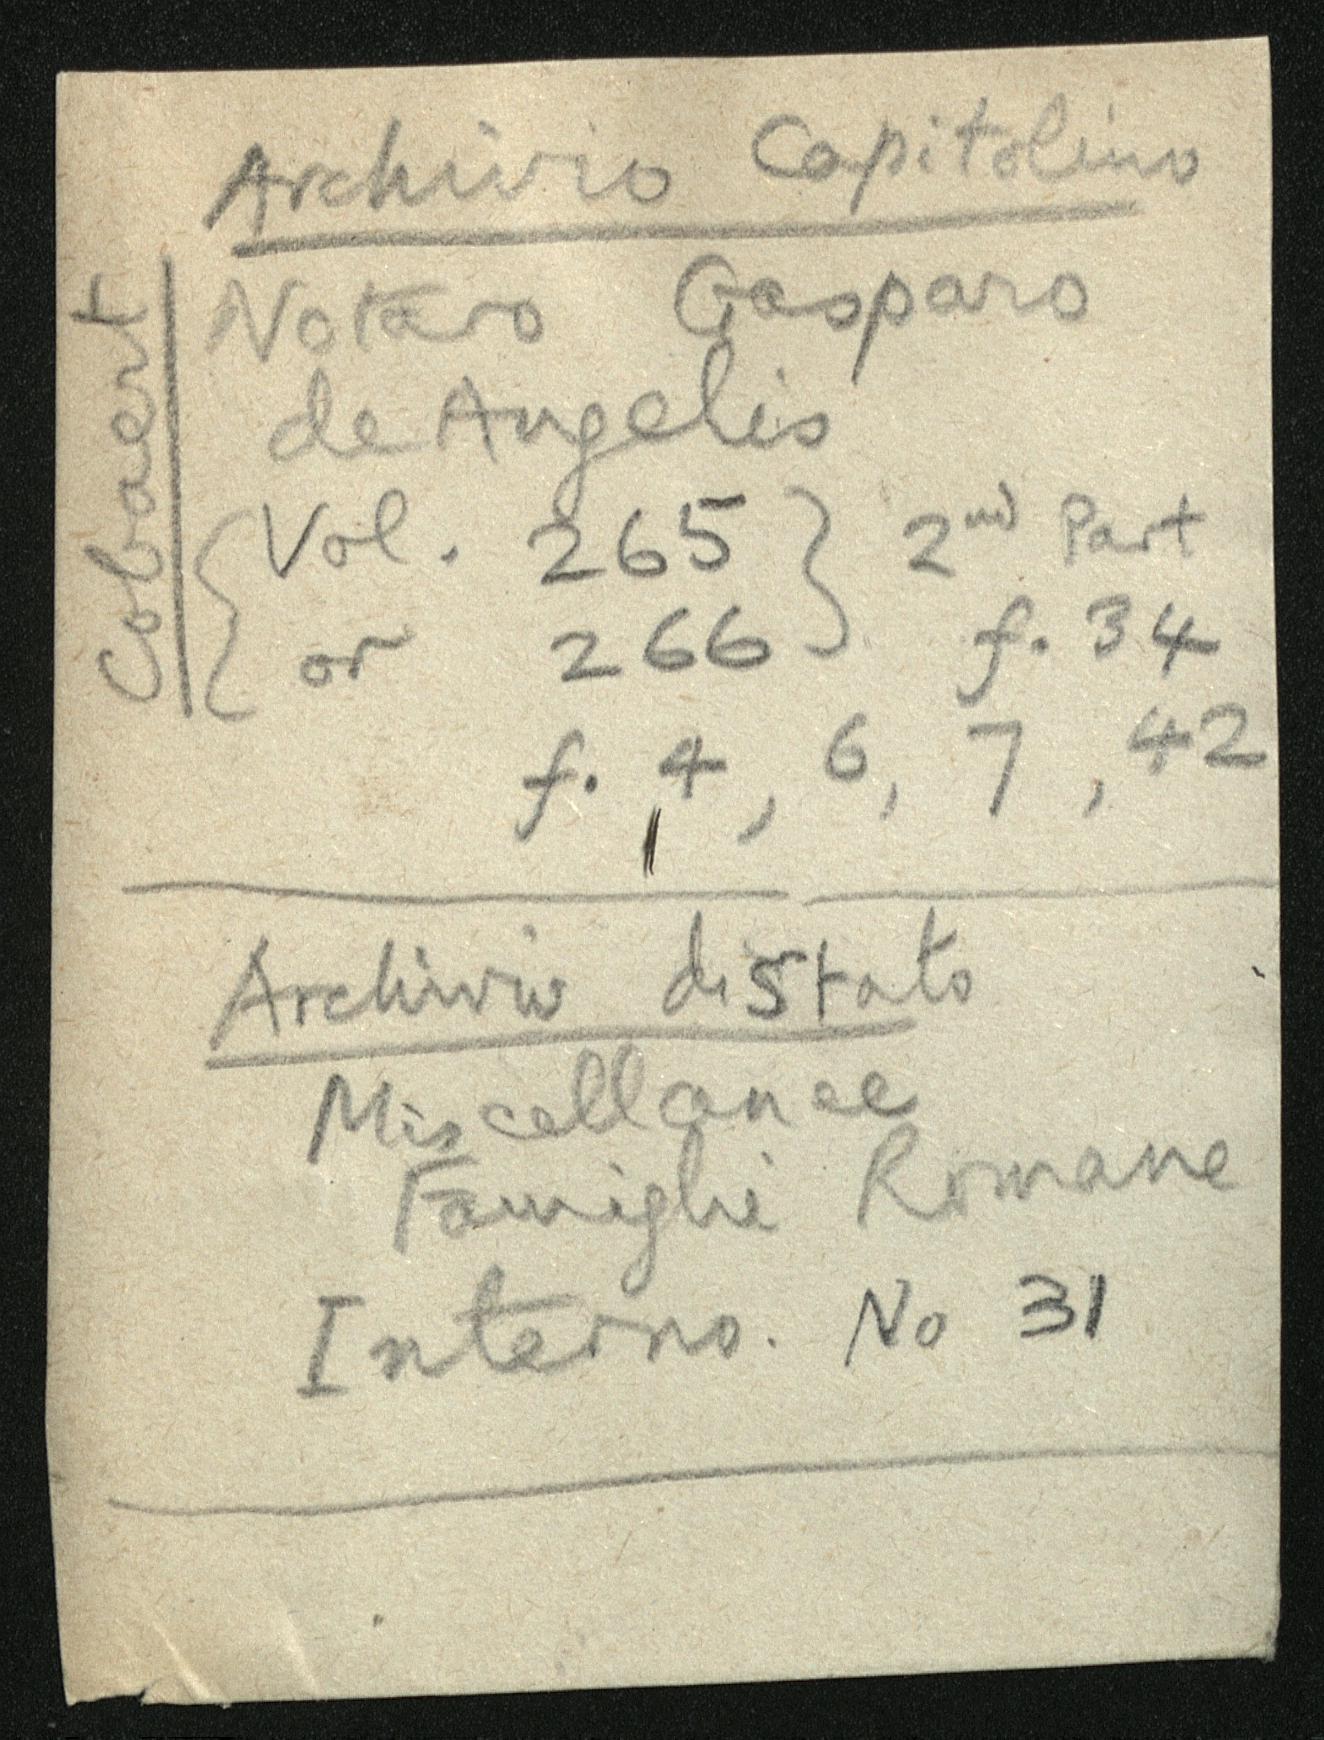 Archivio Capitolino
Cobaert
Notaro Gasparo
de Angelis
{ Vol. 265 } 2nd Part
or 266 f. 34
f. 4, 6, 7, 42
Archivio di Stato
Miscellanee
Famiglie Romane
Interno. No 31